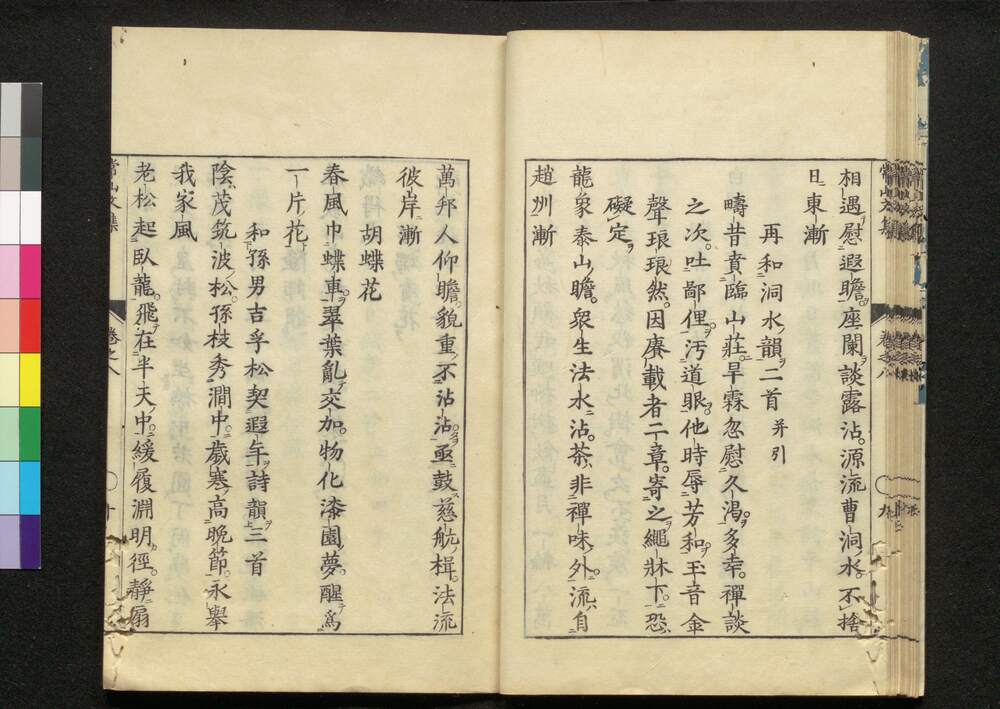 相遇慰遐瞻座闌談露沾源流曹洞水不捨
日東漸
再和洞水韻二首并引
疇昔賁臨山莊旱霖忽慰久渴多幸禪談
之次吐鄙俚汚道眼他時辱芳和玉音金
聲琅琅然因賡載者二章寄之繩牀下恐
礙定
龍象泰山瞻衆生法水沾茶非禪味外流自
趙州漸
常山文集
卷之八
九
萬邦人仰瞻貌重不沾沾亟鼓慈航楫法流
彼岸漸
胡蝶花
春風巾蝶車翠葉亂交加物化漆園夢醒爲
一片花
和孫男吉孚松契遐年詩韻三首
陰茂筑波松孫枝秀澗中歲寒高晚節永擧
我家風
老松起臥龍飛在半天中緩履淵明徑靜扇
常山文集
卷之八
十